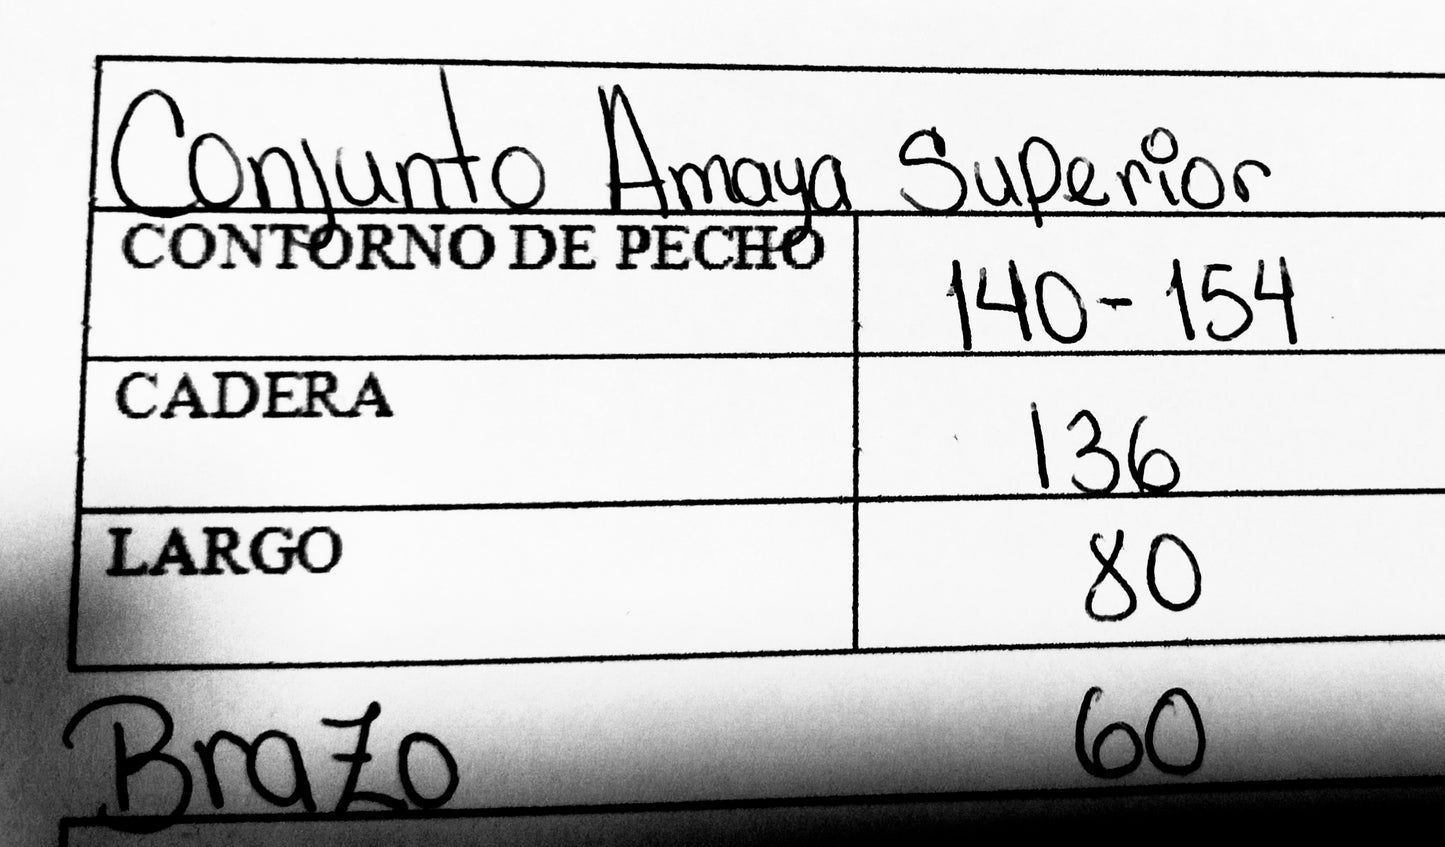 Conjunto Amaya Superior
CONTORNO DE PECHO 140-154
CADERA 136
LARGO 80
Brazo 60